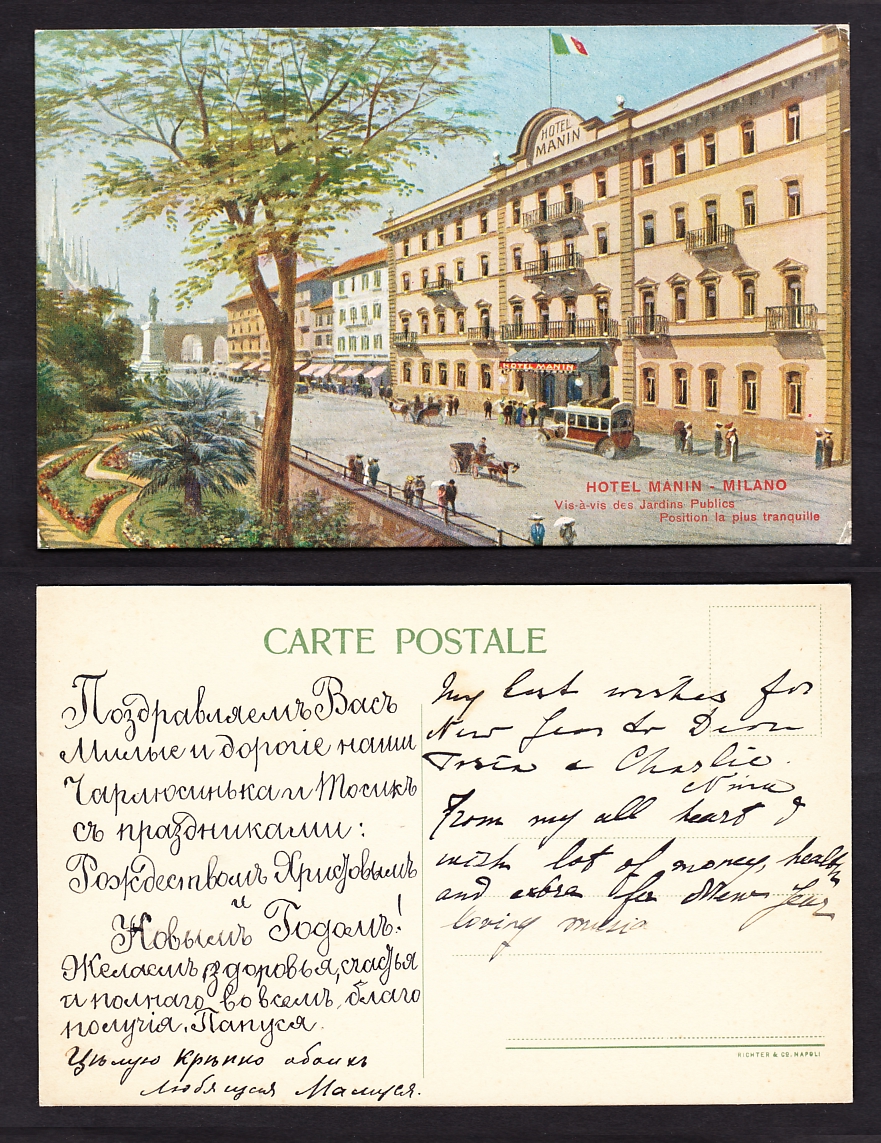 HOTEL
MANIN
HOTEL MANIN
HOTEL MANIN - MILANO
Vis-à-vis des Jardins Publics
Position la plus tranquille
CARTE POSTALE
Поздравляемъ Васъ
Милые и дорогіе наши
Чарлюсинька и Тосикъ
съ праздниками:
Рождествомъ Христовымъ
и
Новымъ Годомъ!
Желаемъ здоровья, счастья
и полнаго во всемъ благо
получія. Папуся.
Цѣлую крѣпко обоихъ
Любящая Мамуся.
My best wishes for
New Year to Dear
Tosia & Charlie.
Nina
From my all heart I
wish lot of money, health
and for New Year
loving
RICHTER & CO. NAPOLI